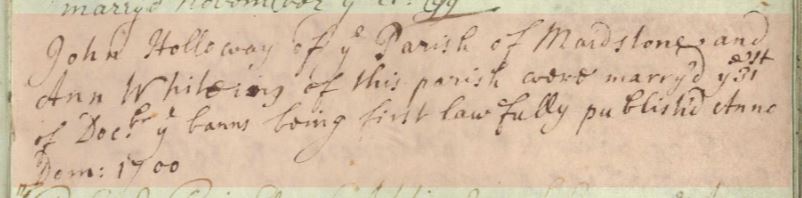 marry'd November yͤ
John Holloway of yͤ Parish of Maidstone and
Ann Whiteing of this parish were marry'd yͤ 31ˢᵗ
of Decbr yͤ banns being first lawfully publish'd Anno
Dom: 1700